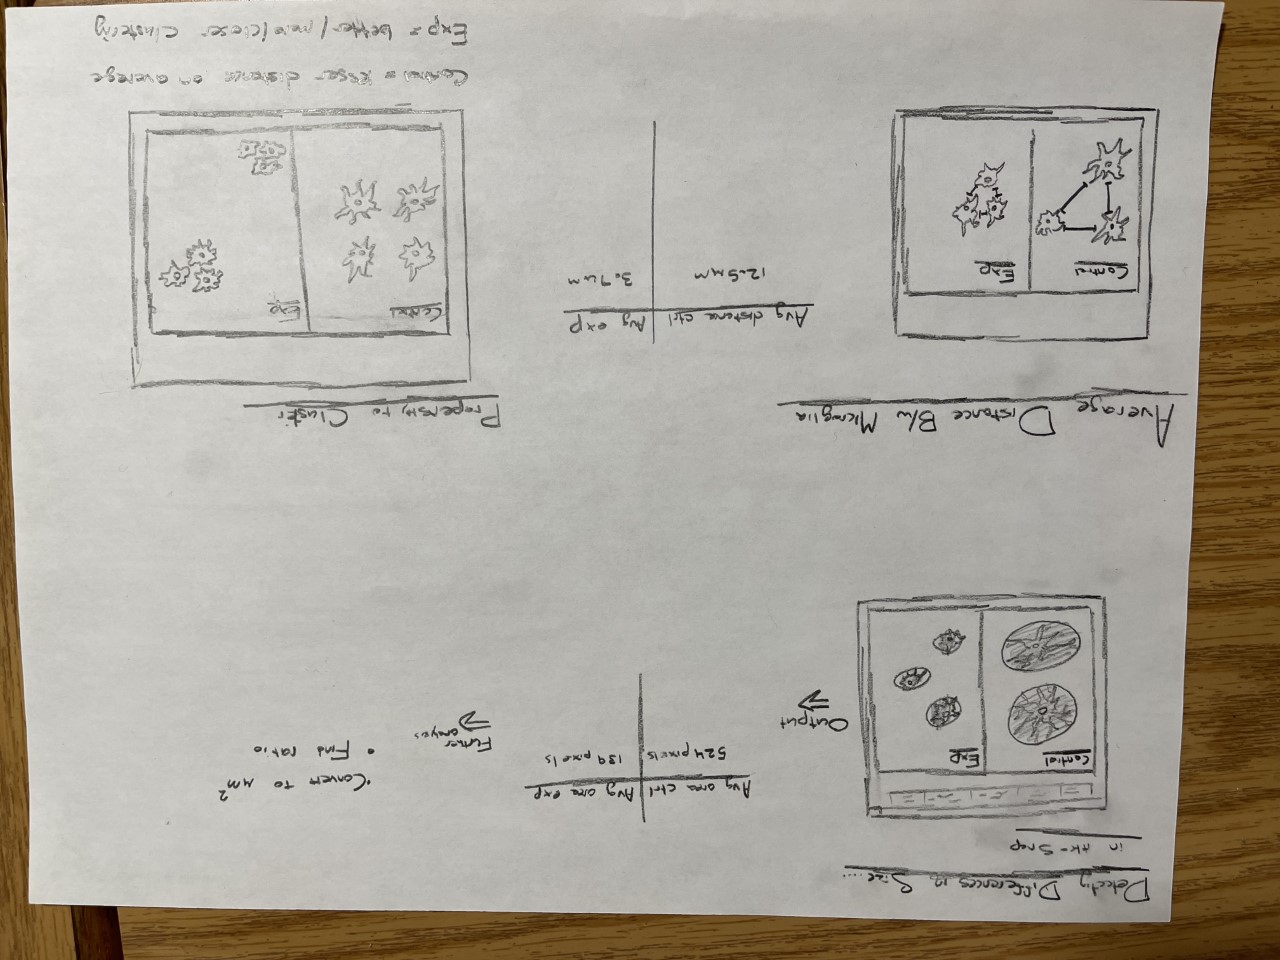 Detecting Differences in Size....
in ITK-Snap
Control
Exp
Output
Avg area ctrl
Avg area exp
524 pixels
139 pixels
Further
analyses
• Convert to µm²
• Find ratio
Average Distance B/w Microglia
Control
Exp
Avg distance ctrl
Avg exp
12.5 µm
3.7 µm
Propensity to Cluster
Control
Exp
Control = larger distance on average
Exp = better / more / closer clustering